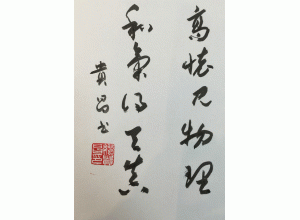 高怀见物理
和气得天真
贵昌书